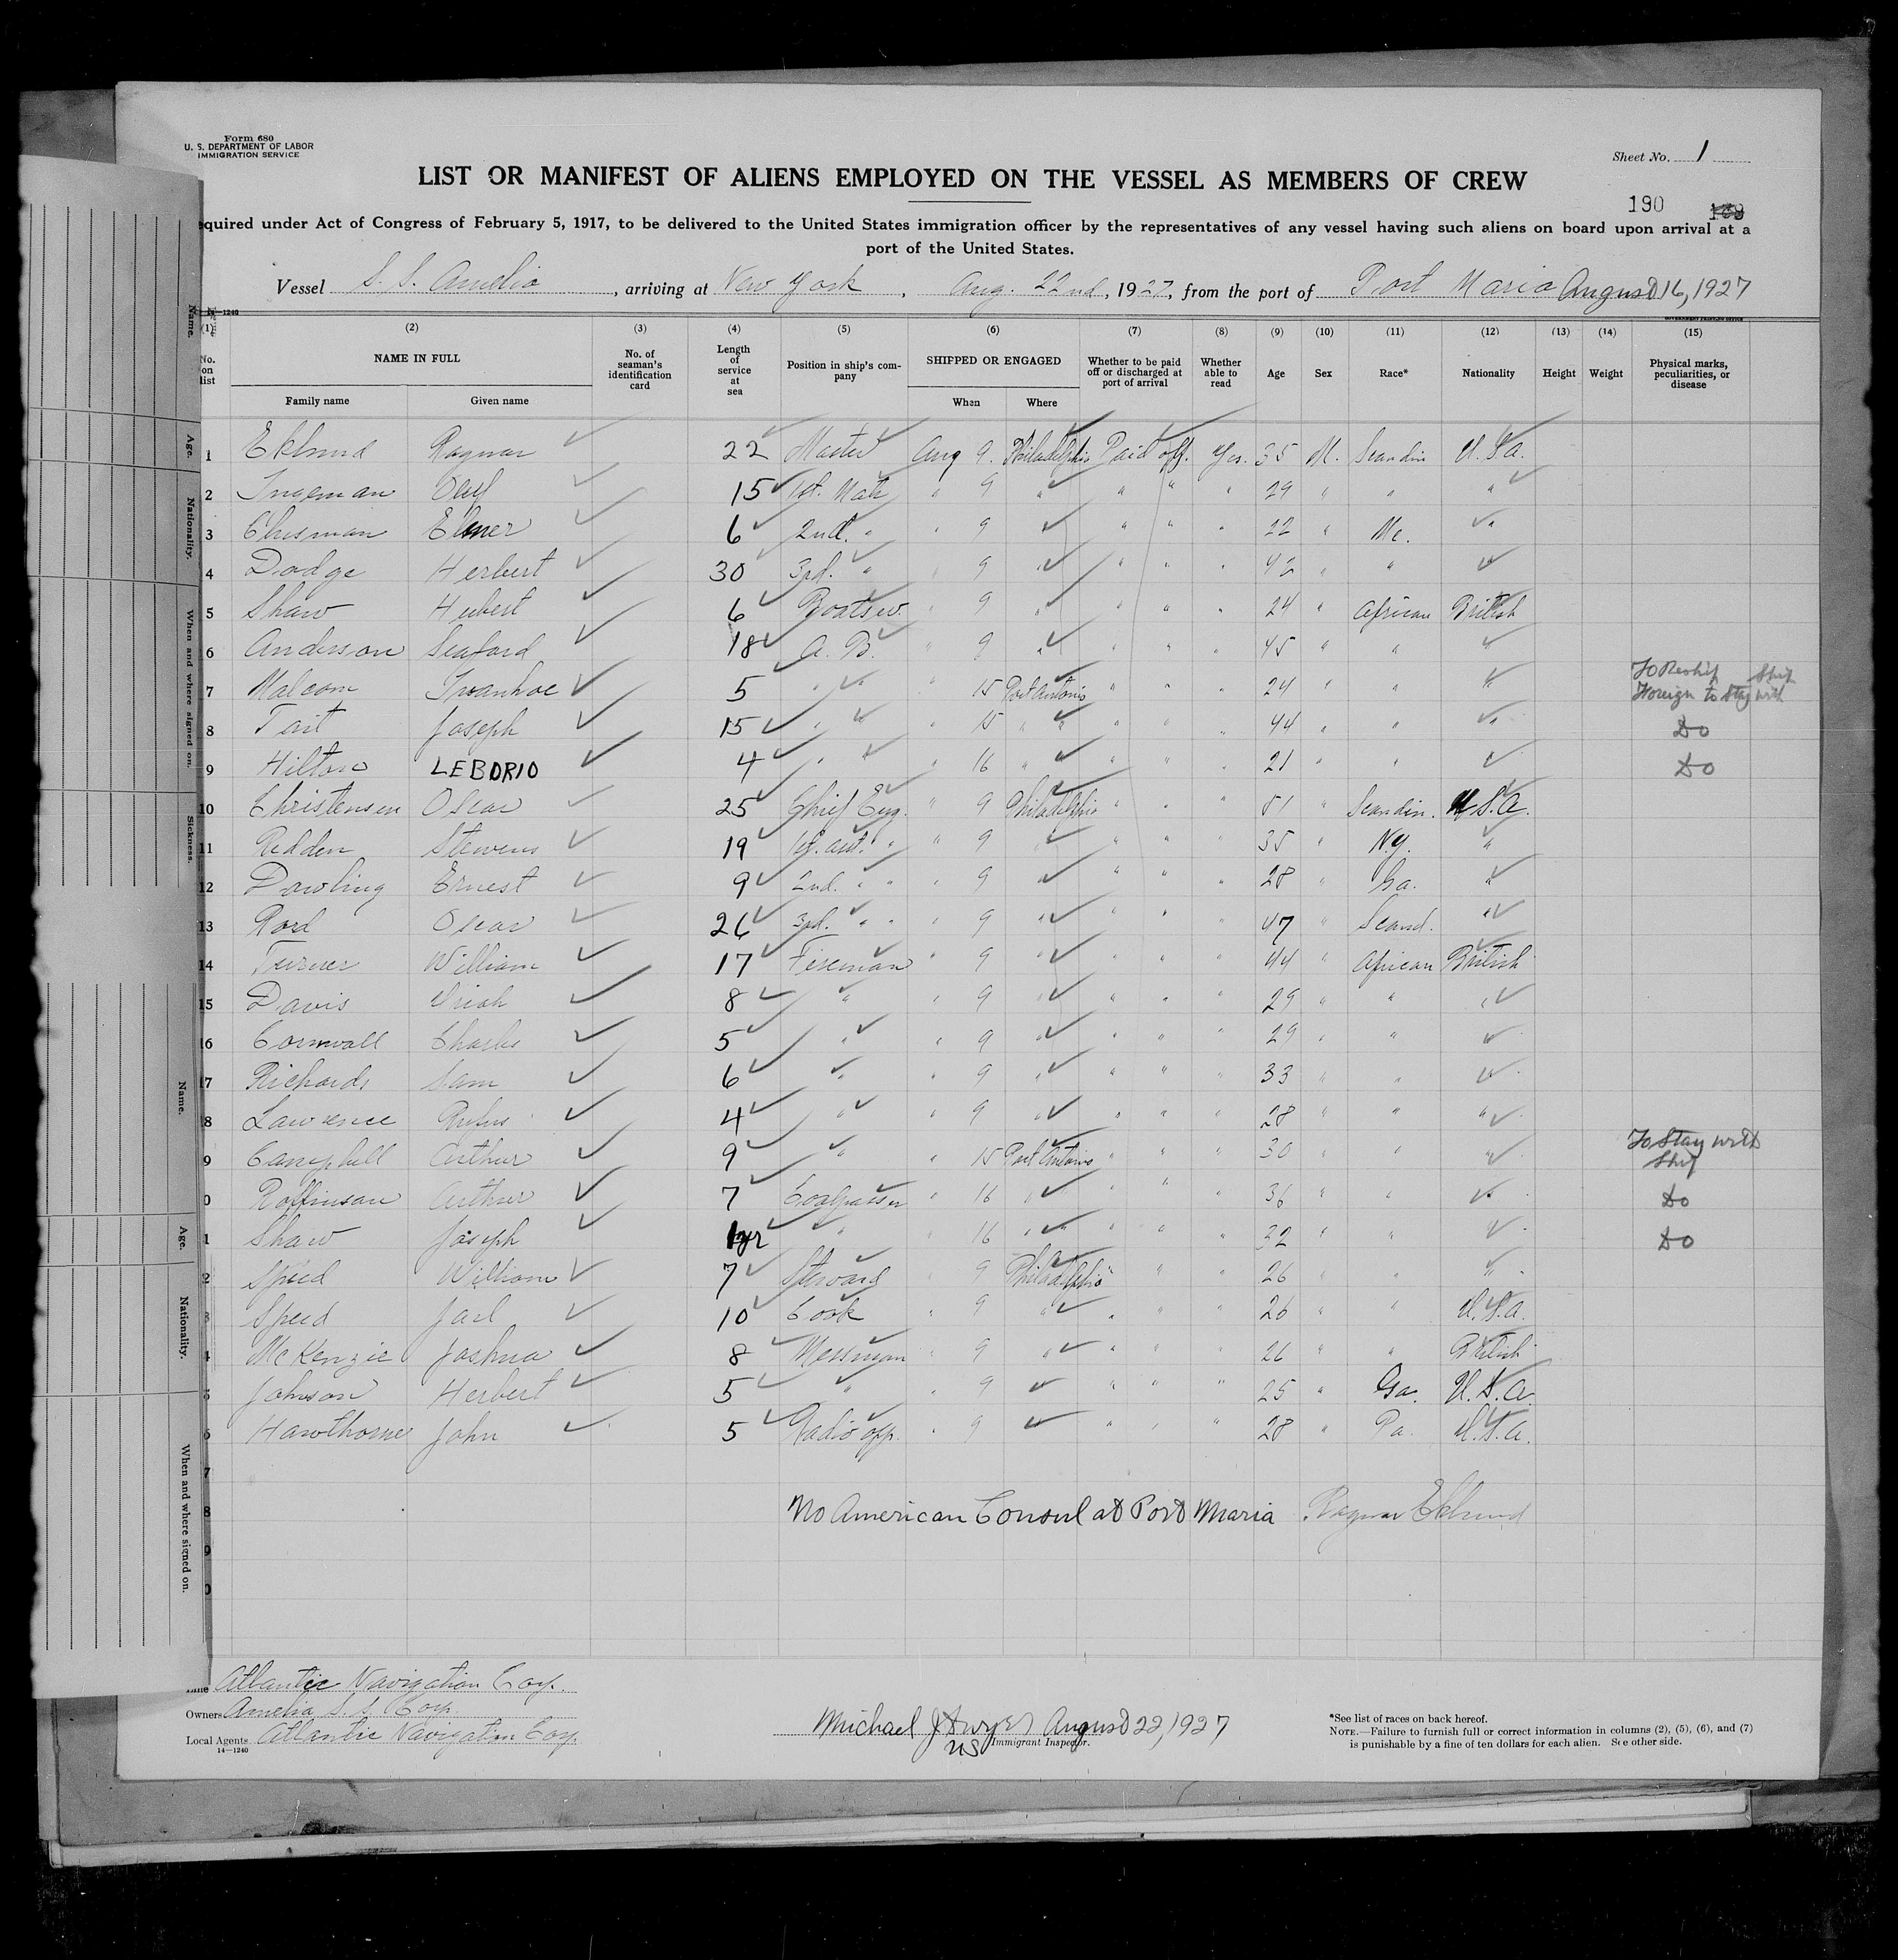 Form 680
U. S. DEPARTMENT OF LABOR
IMMIGRATION SERVICE
Sheet No. 1
LIST OR MANIFEST OF ALIENS EMPLOYED ON THE VESSEL AS MEMBERS OF CREW
190 189
equired under Act of Congress of February 5, 1917, to be delivered to the United States immigration officer by the representatives of any vessel having such aliens on board upon arrival at a
port of the United States.
Vessel S. S. Amelia, arriving at New York, Aug. 22nd, 1927, from the port of Port Maria August 16, 1927
14—1240
(1) (2) (3) (4) (5) (6) (7) (8) (9) (10) (11) (12) (13) (14) (15)
No. on list NAME IN FULL Family name Given name No. of seaman's identification card Length of service at sea Position in ship's company SHIPPED OR ENGAGED When Where Whether to be paid off or discharged at port of arrival Whether able to read Age Sex Race* Nationality Height Weight Physical marks, peculiarities, or disease
1 Eklund Ragnar 22 Master Aug 9. Philadelphia Paid off. Yes. 35 M. Scandin U.S.A.
2 Ingeman Oluf 15 1st. Mate " 9 " " " " 29 " " "
3 Chisman Elmer 6 2nd. " " 9 " " " " 22 " Me. "
4 Dodge Herbert 30 3rd. " " 9 " " " " 42 " " "
5 Shaw Hubert 6 Boatsw. " 9 " " " " 24 " African British
6 Anderson Seaford 18 A. B. " 9 " " " " 45 " " "
7 Malcom Ivanhoe 5 " " " 15 Port Antonio " " " 24 " " " To Reship Foreign to Stay with Ship
8 Tait Joseph 15 " " " 15 " " " " " 44 " " " Do
9 Hilton LEBORIO 4 " " " 16 " " " " " 21 " " " Do
10 Christensen Oscar 25 Chief Eng. " 9 Philadelphia " " " 51 " Scandin. U.S.A.
11 Redden Stewens 19 1st. ast. " " 9 " " " " 35 " N.Y. "
12 Dowling Ernest 9 2nd. " " " 9 " " " " 28 " Ga. "
13 Rord Oscar 26 3rd. " " " 9 " " " " 47 " Scand. "
14 Turner William 17 Fireman " 9 " " " " 44 " African British
15 Davis Uriah 8 " " 9 " " " " 29 " " "
16 Cornwall Charles 5 " " 9 " " " " 29 " " "
17 Richards Sam 6 " " 9 " " " " 33 " " "
8 Lawrence Rufus 4 " " 9 " " " " 28 " " "
9 Campbell Arthur 9 " " 15 Port Antonio " " " 30 " " " To Stay with Ship
0 Rollinson Arthur 7 Coalpasser " 16 " " " " 36 " " " Do
1 Shaw Joseph 1yr " " 16 " " " " " 32 " " " Do
2 Speed William 7 Steward " 9 Philadelphia " " " 26 " " "
3 Speed Jael 10 Cook " 9 " " " " 26 " " U.S.A.
4 McKenzie Joshua 8 Messman " 9 " " " " 26 " " British
5 Johnson Herbert 5 " " 9 " " " " 25 " Ga. U.S.A.
6 Hawthorne John 5 Radio opp. " 9 " " " " 28 " Pa. U.S.A.
7
8 No American Consul at Port Maria Ragnar Eklund
9
0
Line Atlantic Navigation Corp.
Owners Amelia S. S. Corp
Local Agents Atlantic Navigation Corp.
14—1240
Michael J Dwyer August 22, 1927
US Immigrant Inspector.
*See list of races on back hereof.
NOTE.—Failure to furnish full or correct information in columns (2), (5), (6), and (7)
is punishable by a fine of ten dollars for each alien. See other side.
Name.
Age.
Nationality.
When and where signed on.
Sickness.
Name.
Age.
Nationality.
When and where signed on.